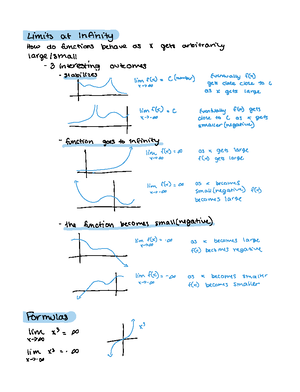 Limits at Infinity
How do functions behave as x gets arbitrarily
large/small
- 3 interesting outcomes
- stabilises
lim f(x) = L (number)
x→∞
eventually f(x)
gets close close to L
as x gets large
lim f(x) = L
x→-∞
eventually f(x) gets
close to L as x gets
smaller (negative)
- function goes to infinity
lim f(x) = ∞
x→∞
as x gets large
f(x) gets large
lim f(x) = ∞
x→-∞
as x becomes
small (negative) f(x)
becomes large
- the function becomes small (negative)
lim f(x) = -∞
x→∞
as x becomes large
f(x) becomes negative
lim f(x) = -∞
x→-∞
as x becomes smaller
f(x) becomes smaller
Formulas
lim x³ = ∞
x→∞
x³
lim x³ = -∞
x→-∞